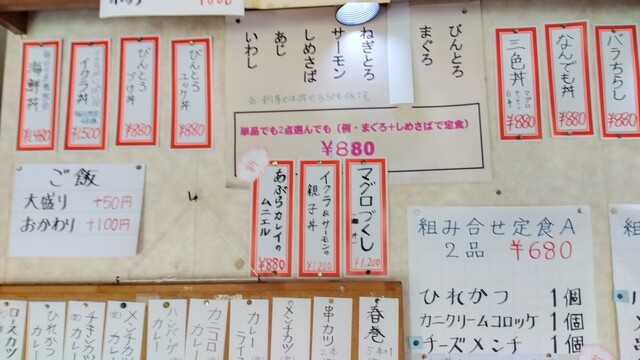 海鮮丼
¥1,480
イクラ丼
¥1,500
びんとろ
づけ丼
¥880
びんとろ
ユッケ丼
¥880
びんとろ
まぐろ
ねぎとろ
サーモン
しめさば
あじ
いわし
単品でも2点選んでも(例・まぐろ+しめさばで定食)
¥880
三色丼
¥880
なんでも丼
¥880
バラちらし
¥880
ご飯
大盛り +50円
おかわり +100円
あぶらカレイの
ムニエル
¥880
イクラ&サーモンの
親子丼
¥1,200
マグロづくし
¥1,200
組み合せ定食A
2品 ¥680
ひれかつ 1個
カニクリームコロッケ 1個
チーズメンチ 1個
ロースカツ
ひれかつ
カレー
チキンカツ
カレー
メンチカツ
カレー
ハンバーグ
カレー
カニコロ
カレー
カレー
ライス
メンチカツ
串カツ
2本
春巻
5本